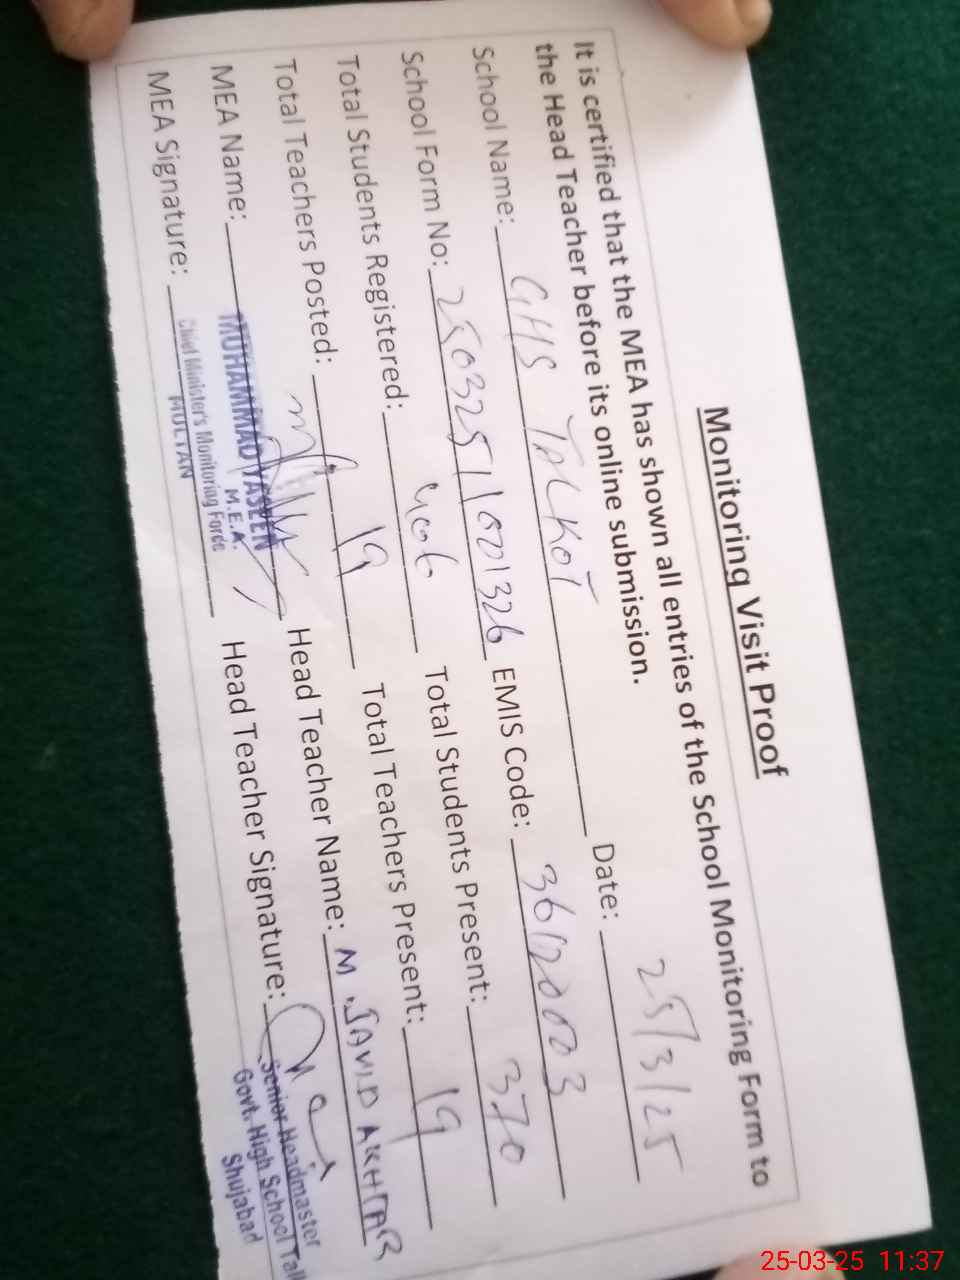 Monitoring Visit Proof
It is certified that the MEA has shown all entries of the School Monitoring Form to
the Head Teacher before its online submission.
School Name: GHS TALKOT Date: 25/3/25
School Form No: 250325 1601326 EMIS Code: 36120003
Total Students Registered: Total Students Present: 370
Total Teachers Posted: 19 Total Teachers Present: 19
MEA Name: MUHAMMAD YASEEN Head Teacher Name: M. JAVID AKHTAR
M.E.A.
MEA Signature: Chief Minister's Monitoring Force Head Teacher Signature: Senior Headmaster
MULTAN Govt. High School Tal
Shujabad
25-03-25 11:37